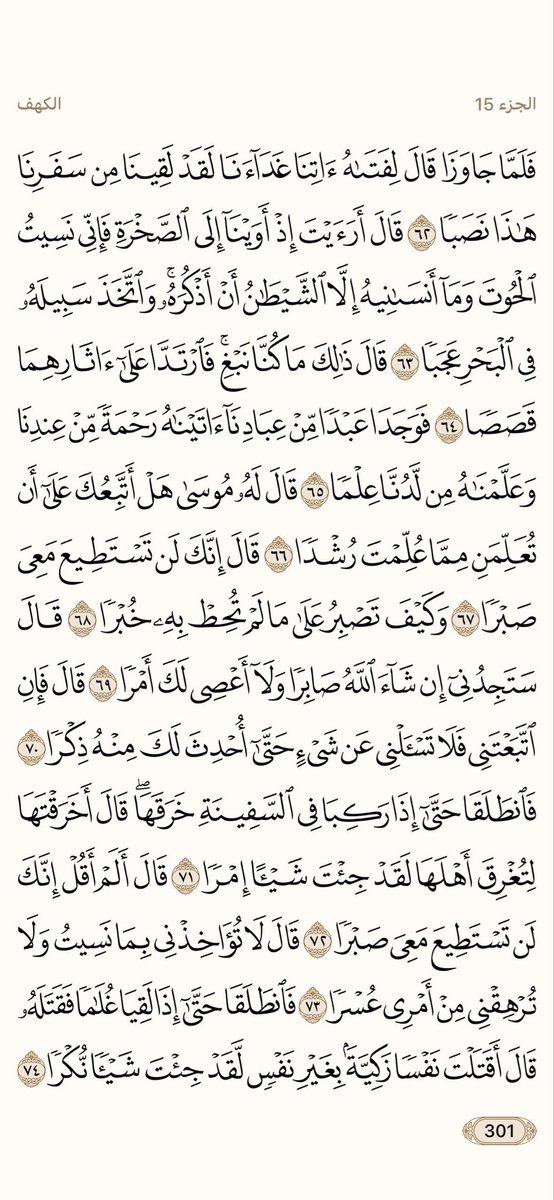 الجزء 15
الكهف
فَلَمَّا جَاوَزَا قَالَ لِفَتَىٰهُ ءَاتِنَا غَدَآءَنَا لَقَدۡ لَقِينَا مِن سَفَرِنَا
هَٰذَا نَصَبٗا ٦٢ قَالَ أَرَءَيۡتَ إِذۡ أَوَيۡنَآ إِلَى ٱلصَّخۡرَةِ فَإِنِّي نَسِيتُ
ٱلۡحُوتَ وَمَآ أَنسَىٰنِيهُ إِلَّا ٱلشَّيۡطَٰنُ أَنۡ أَذۡكُرَهُۥۚ وَٱتَّخَذَ سَبِيلَهُۥ
فِي ٱلۡبَحۡرِ عَجَبٗا ٦٣ قَالَ ذَٰلِكَ مَا كُنَّا نَبۡغِۚ فَٱرۡتَدَّا عَلَىٰٓ ءَاثَارِهِمَا
قَصَصٗا ٦٤ فَوَجَدَا عَبۡدٗا مِّنۡ عِبَادِنَآ ءَاتَيۡنَٰهُ رَحۡمَةٗ مِّنۡ عِندِنَا
وَعَلَّمۡنَٰهُ مِن لَّدُنَّا عِلۡمٗا ٦٥ قَالَ لَهُۥ مُوسَىٰ هَلۡ أَتَّبِعُكَ عَلَىٰٓ أَن
تُعَلِّمَنِ مِمَّا عُلِّمۡتَ رُشۡدٗا ٦٦ قَالَ إِنَّكَ لَن تَسۡتَطِيعَ مَعِيَ
صَبۡرٗا ٦٧ وَكَيۡفَ تَصۡبِرُ عَلَىٰ مَا لَمۡ تُحِطۡ بِهِۦ خُبۡرٗا ٦٨ قَالَ
سَتَجِدُنِيٓ إِن شَآءَ ٱللَّهُ صَابِرٗا وَلَآ أَعۡصِي لَكَ أَمۡرٗا ٦٩ قَالَ فَإِنِ
ٱتَّبَعۡتَنِي فَلَا تَسۡـَٔلۡنِي عَن شَيۡءٍ حَتَّىٰٓ أُحۡدِثَ لَكَ مِنۡهُ ذِكۡرٗا ٧٠
فَٱنطَلَقَا حَتَّىٰٓ إِذَا رَكِبَا فِي ٱلسَّفِينَةِ خَرَقَهَاۖ قَالَ أَخَرَقۡتَهَا
لِتُغۡرِقَ أَهۡلَهَا لَقَدۡ جِئۡتَ شَيۡـًٔا إِمۡرٗا ٧١ قَالَ أَلَمۡ أَقُلۡ إِنَّكَ
لَن تَسۡتَطِيعَ مَعِيَ صَبۡرٗا ٧٢ قَالَ لَا تُؤَاخِذۡنِي بِمَا نَسِيتُ وَلَا
تُرۡهِقۡنِي مِنۡ أَمۡرِي عُسۡرٗا ٧٣ فَٱنطَلَقَا حَتَّىٰٓ إِذَا لَقِيَا غُلَٰمٗا فَقَتَلَهُۥ
قَالَ أَقَتَلۡتَ نَفۡسٗا زَكِيَّةَۢ بِغَيۡرِ نَفۡسٖ لَّقَدۡ جِئۡتَ شَيۡـٔٗا نُّكۡرٗا ٧٤
301